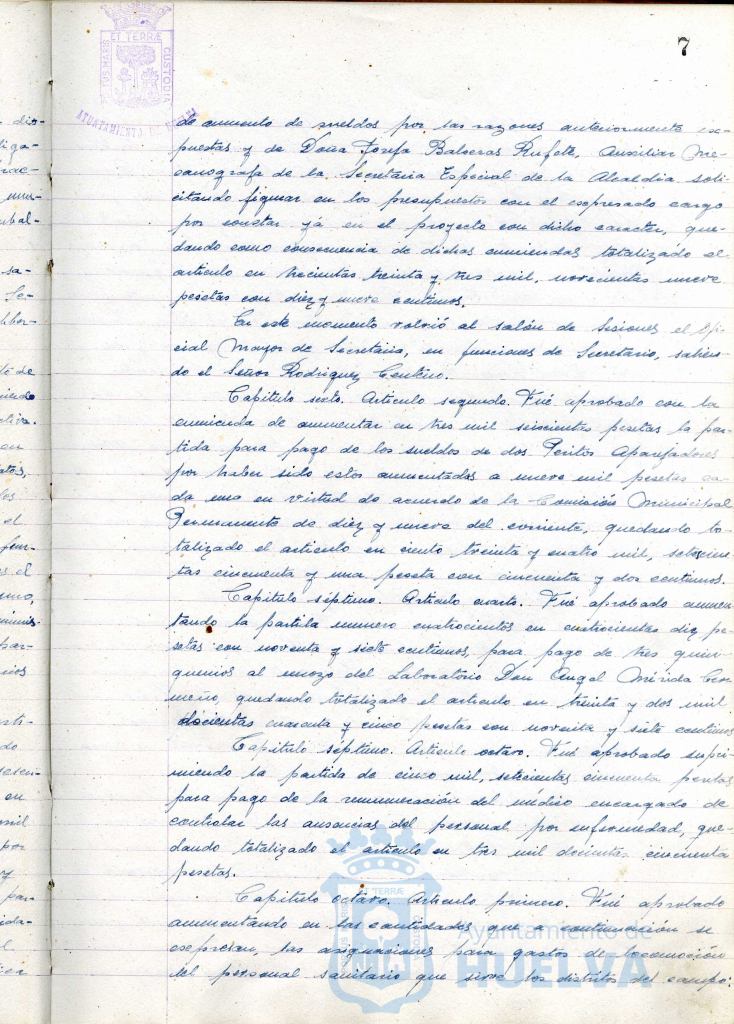 7
PORTUS MARIS ET TERRÆ CUSTODIA
AYUNTAMIENTO DE HUELVA
de aumento de sueldos por las razones anteriormente ex-
puestas y de Doña Josefa Balseras Rufete, Auxiliar Me-
canografa de la Secretaria Especial de la Alcaldia soli-
citando figurar en los presupuestos con el expresado cargo
por constar ya en el proyecto con dicho caracter, que-
dando como consecuencia de dichas enmiendas totalizado el
articulo en trecientas treinta y tres mil, novecientas nueve
pesetas con diez y nueve centimos.
En este momento volvió al salón de Sesiones el Ofi-
cial Mayor de Secretaria, en funciones de Secretario, salien-
do el Señor Rodriguez Centeno.
Capitulo sexto. Articulo segundo. Fué aprobado con la
enmienda de aumentar en tres mil seiscientas pesetas la par-
tida para pago de los sueldos de dos Peritos Aparejadores
por haber sido estos aumentados a nueve mil pesetas ca-
da uno en virtud de acuerdo de la Comisión Municipal
Permanente de diez y nueve del corriente, quedando to-
talizado el articulo en ciento treinta y cuatro mil, setecien-
tas cincuenta y una peseta con cincuenta y dos centimos.
Capitulo séptimo. Articulo cuarto. Fué aprobado aumen-
tando la partida numero cuatrocientos en cuatrocientas diez pe-
setas con noventa y siete centimos, para pago de tres quin-
quenios al mozo del Laboratorio Don Angel Mérida
quedando totalizado el articulo en treinta y dos mil
doscientas cuarenta y cinco pesetas con noventa y siete centimos
Capitulo séptimo. Articulo octavo. Fué aprobado supri-
miendo la partida de cinco mil, setecientas cincuenta pesetas
para pago de la remuneración del médico encargado de
controlar las ausencias del personal por enfermedad, que-
dando totalizado el articulo en tres mil docientas cincuenta
pesetas.
Capitulo octavo. Articulo primero. Fué aprobado
aumentando en las cantidades que a continuación se
expresan, las asignaciones para gastos de locomoción
del personal sanitario que sirve los distritos del campo:
Ayuntamiento de
HUELVA